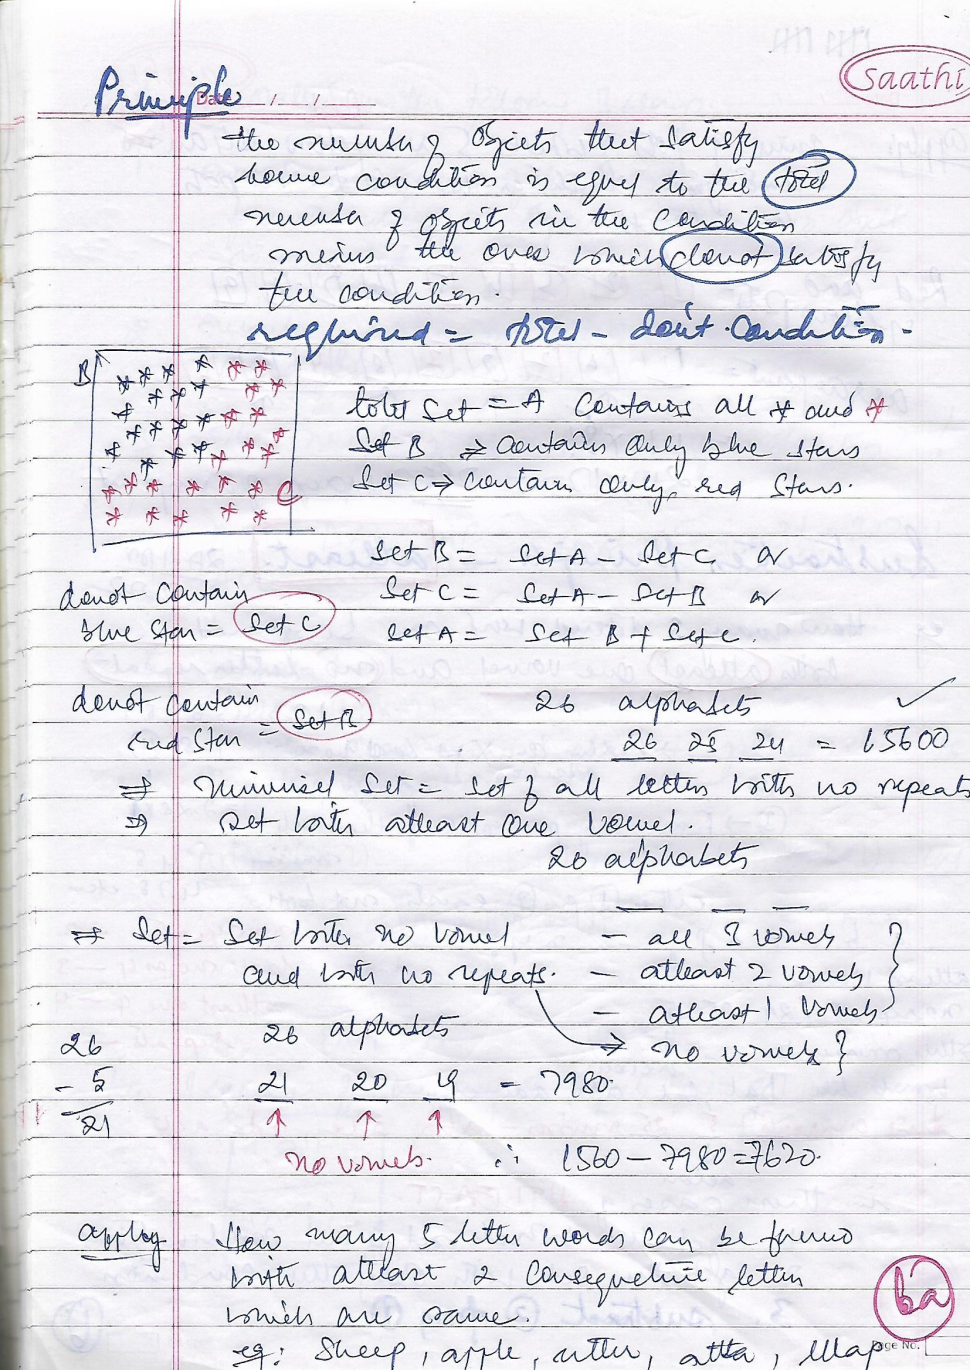 saathi
Principle
Date / /
the number of objects that satisfy
some condition is equal to the total
number of objects in the condition
minus the ones which donot satisfy
the condition.
required = total - don't condition -
B
total set = A contains all * and *
Set B ⇒ contains only blue stars
C Set C ⇒ contain only red stars.
Set B = Set A - Set C or
donot contain Set C = Set A - Set B or
blue star = Set C Set A = Set B + Set C.
donot contain
red star = Set B
26 alphabets ✓
26 25 24 = 15600
⇒ Universal Set = set of all letter with no repeats
⇒ set with atleast one vowel.
26 alphabets
⇒ Set = Set with no vowel - all 3 vowels
and with no repeats. - atleast 2 vowels
- atleast 1 vowels
→ no vowels }
26 26 alphabets
- 5 21 20 19 = 7980.
21
no vowels. ∴ 1560 - 7980 = 7620.
apply How many 5 letter words can be
with atleast 2 letter
which are same.
6a
Page No.
eg: Sheep, apple, utter, atta,